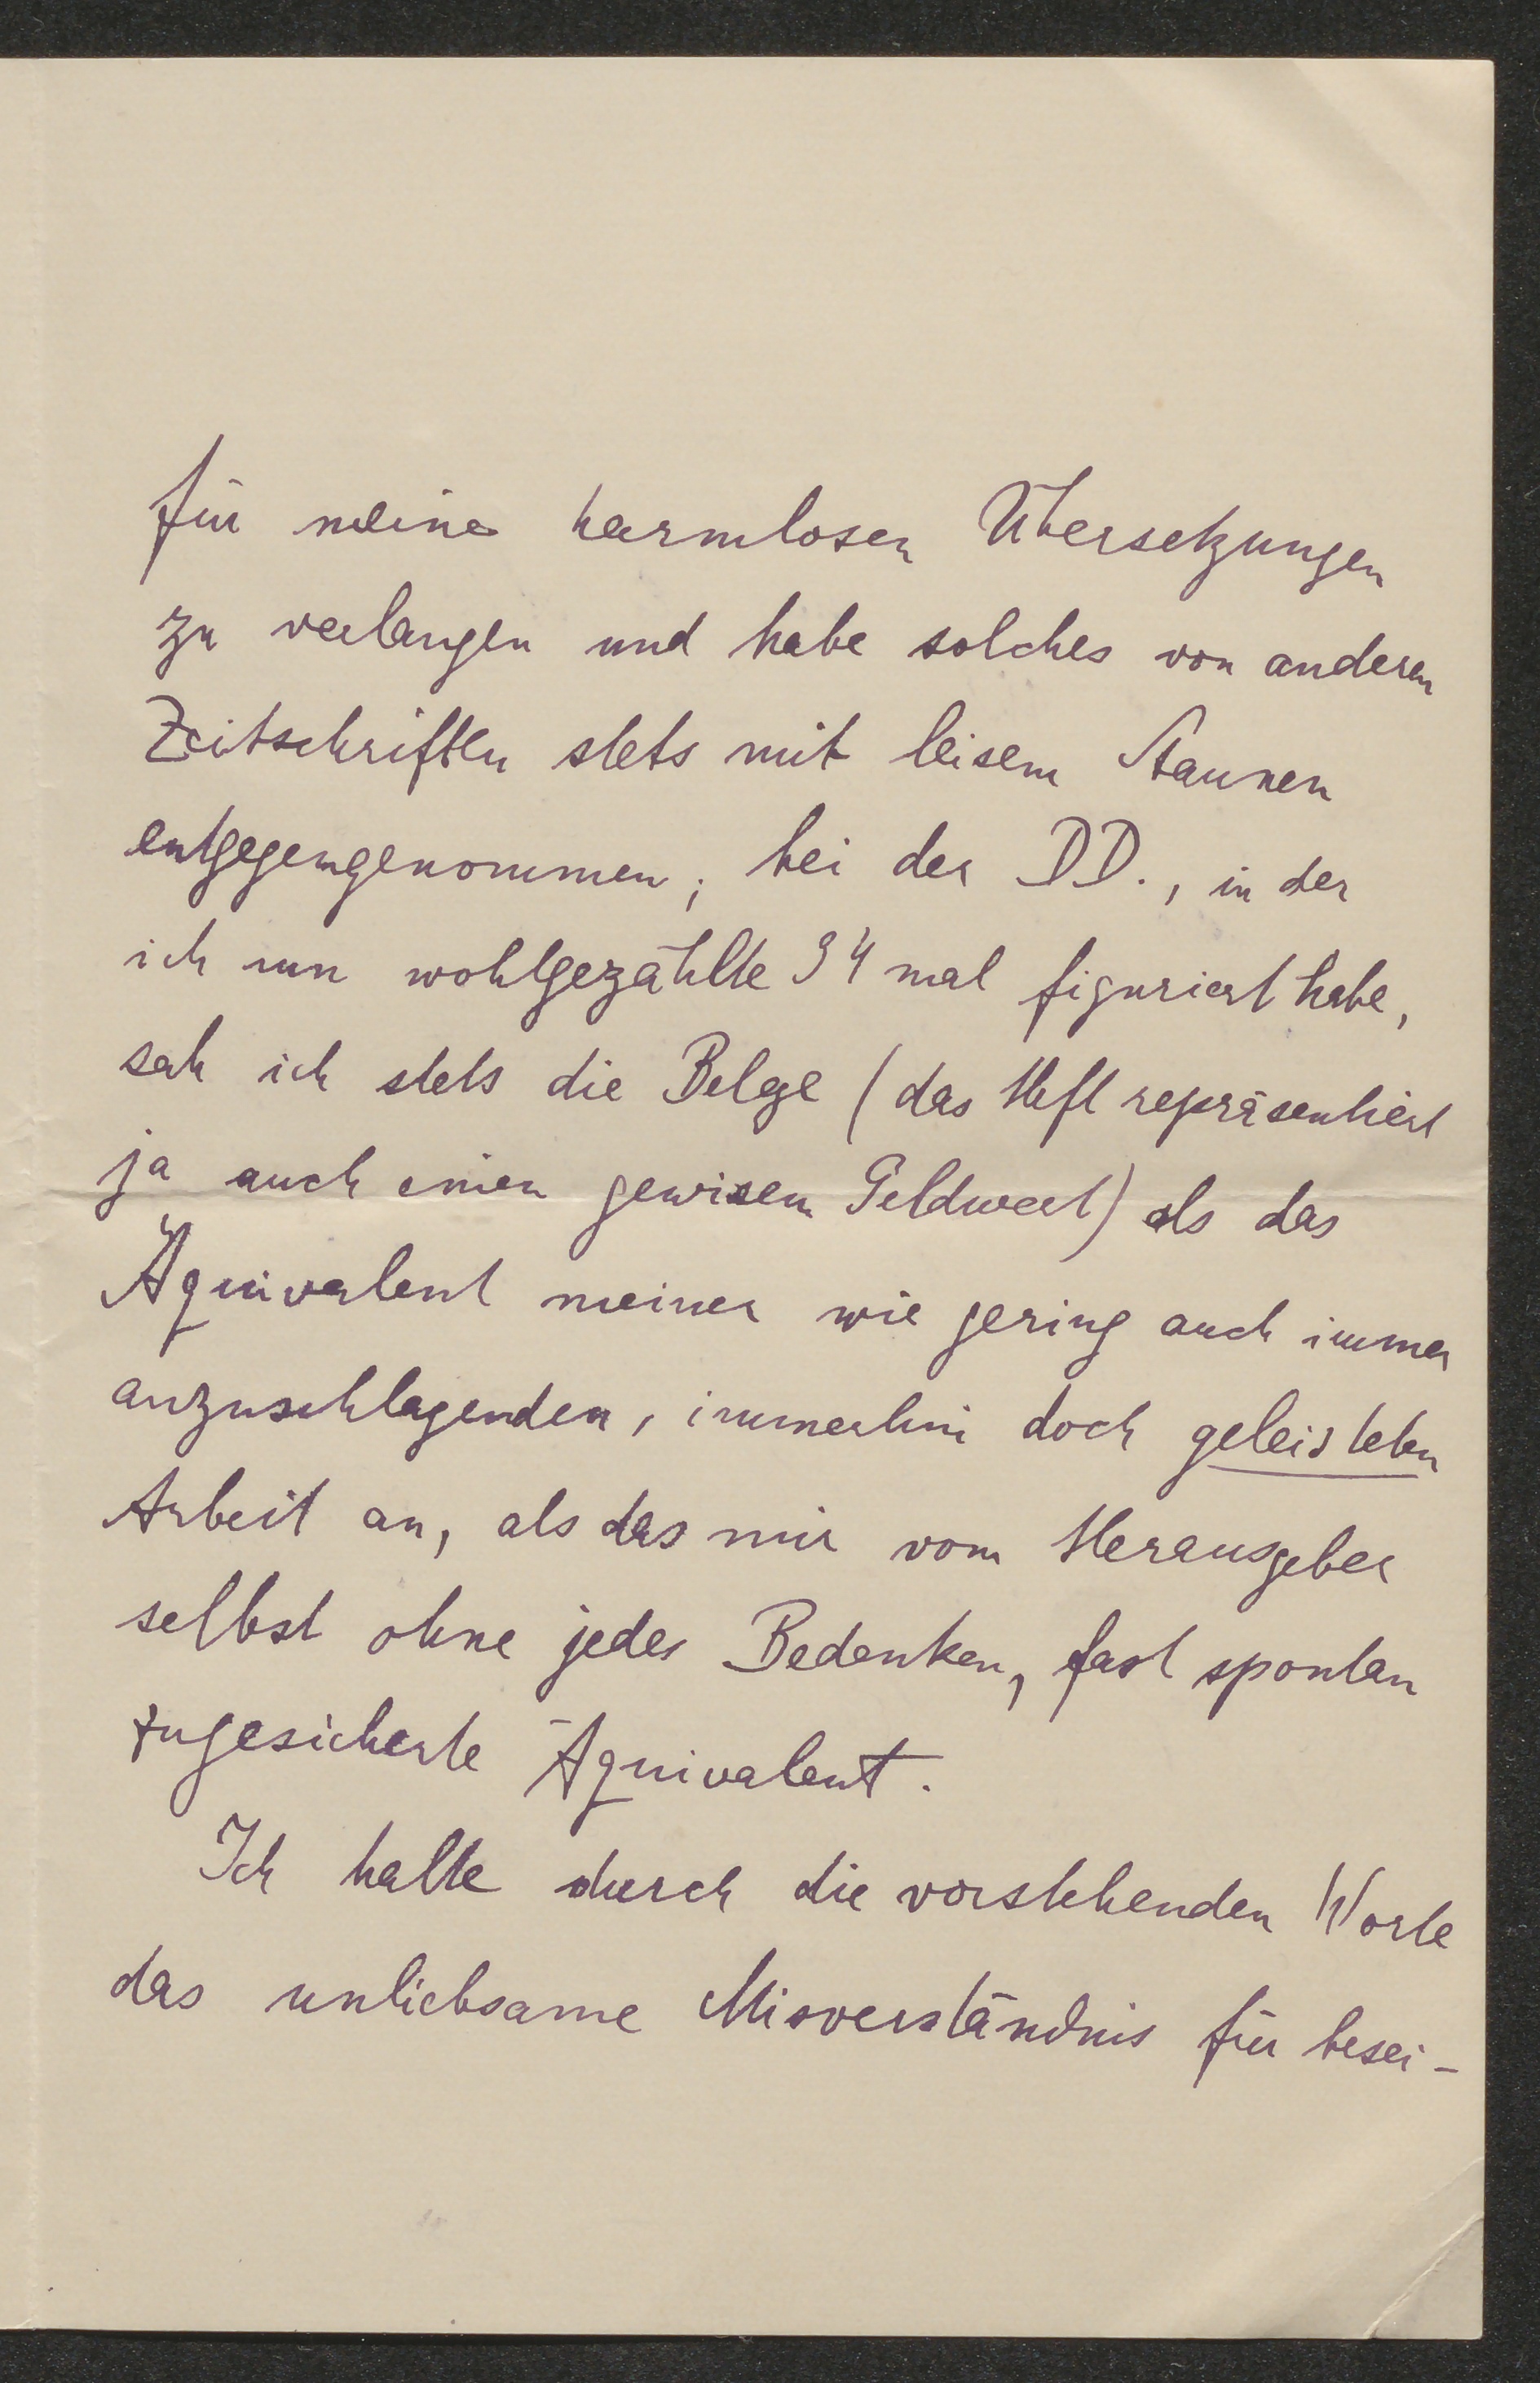 für meine harmlosen Übersetzungen
zu verlangen und habe solches von anderen
Zeitschriften stets mit leisem Staunen
entgegengenommen; bei der DD., in der
ich nun wohlgezählte 34 mal figuriert habe,
sah ich stets die Belege (das Heft repräsentiert
ja auch einen gewisen Geldwert) als das
Äquivalent meiner wie gering auch immer
anzuschlagenden, immerhin doch geleisteten
Arbeit an, als das mir vom Herausgeber
selbst ohne jedes Bedenken, fast spontan
zugesicherte Äquivalent.
Ich halte durch die vorstehenden Worte
das unliebsame Misverständnis für besei-